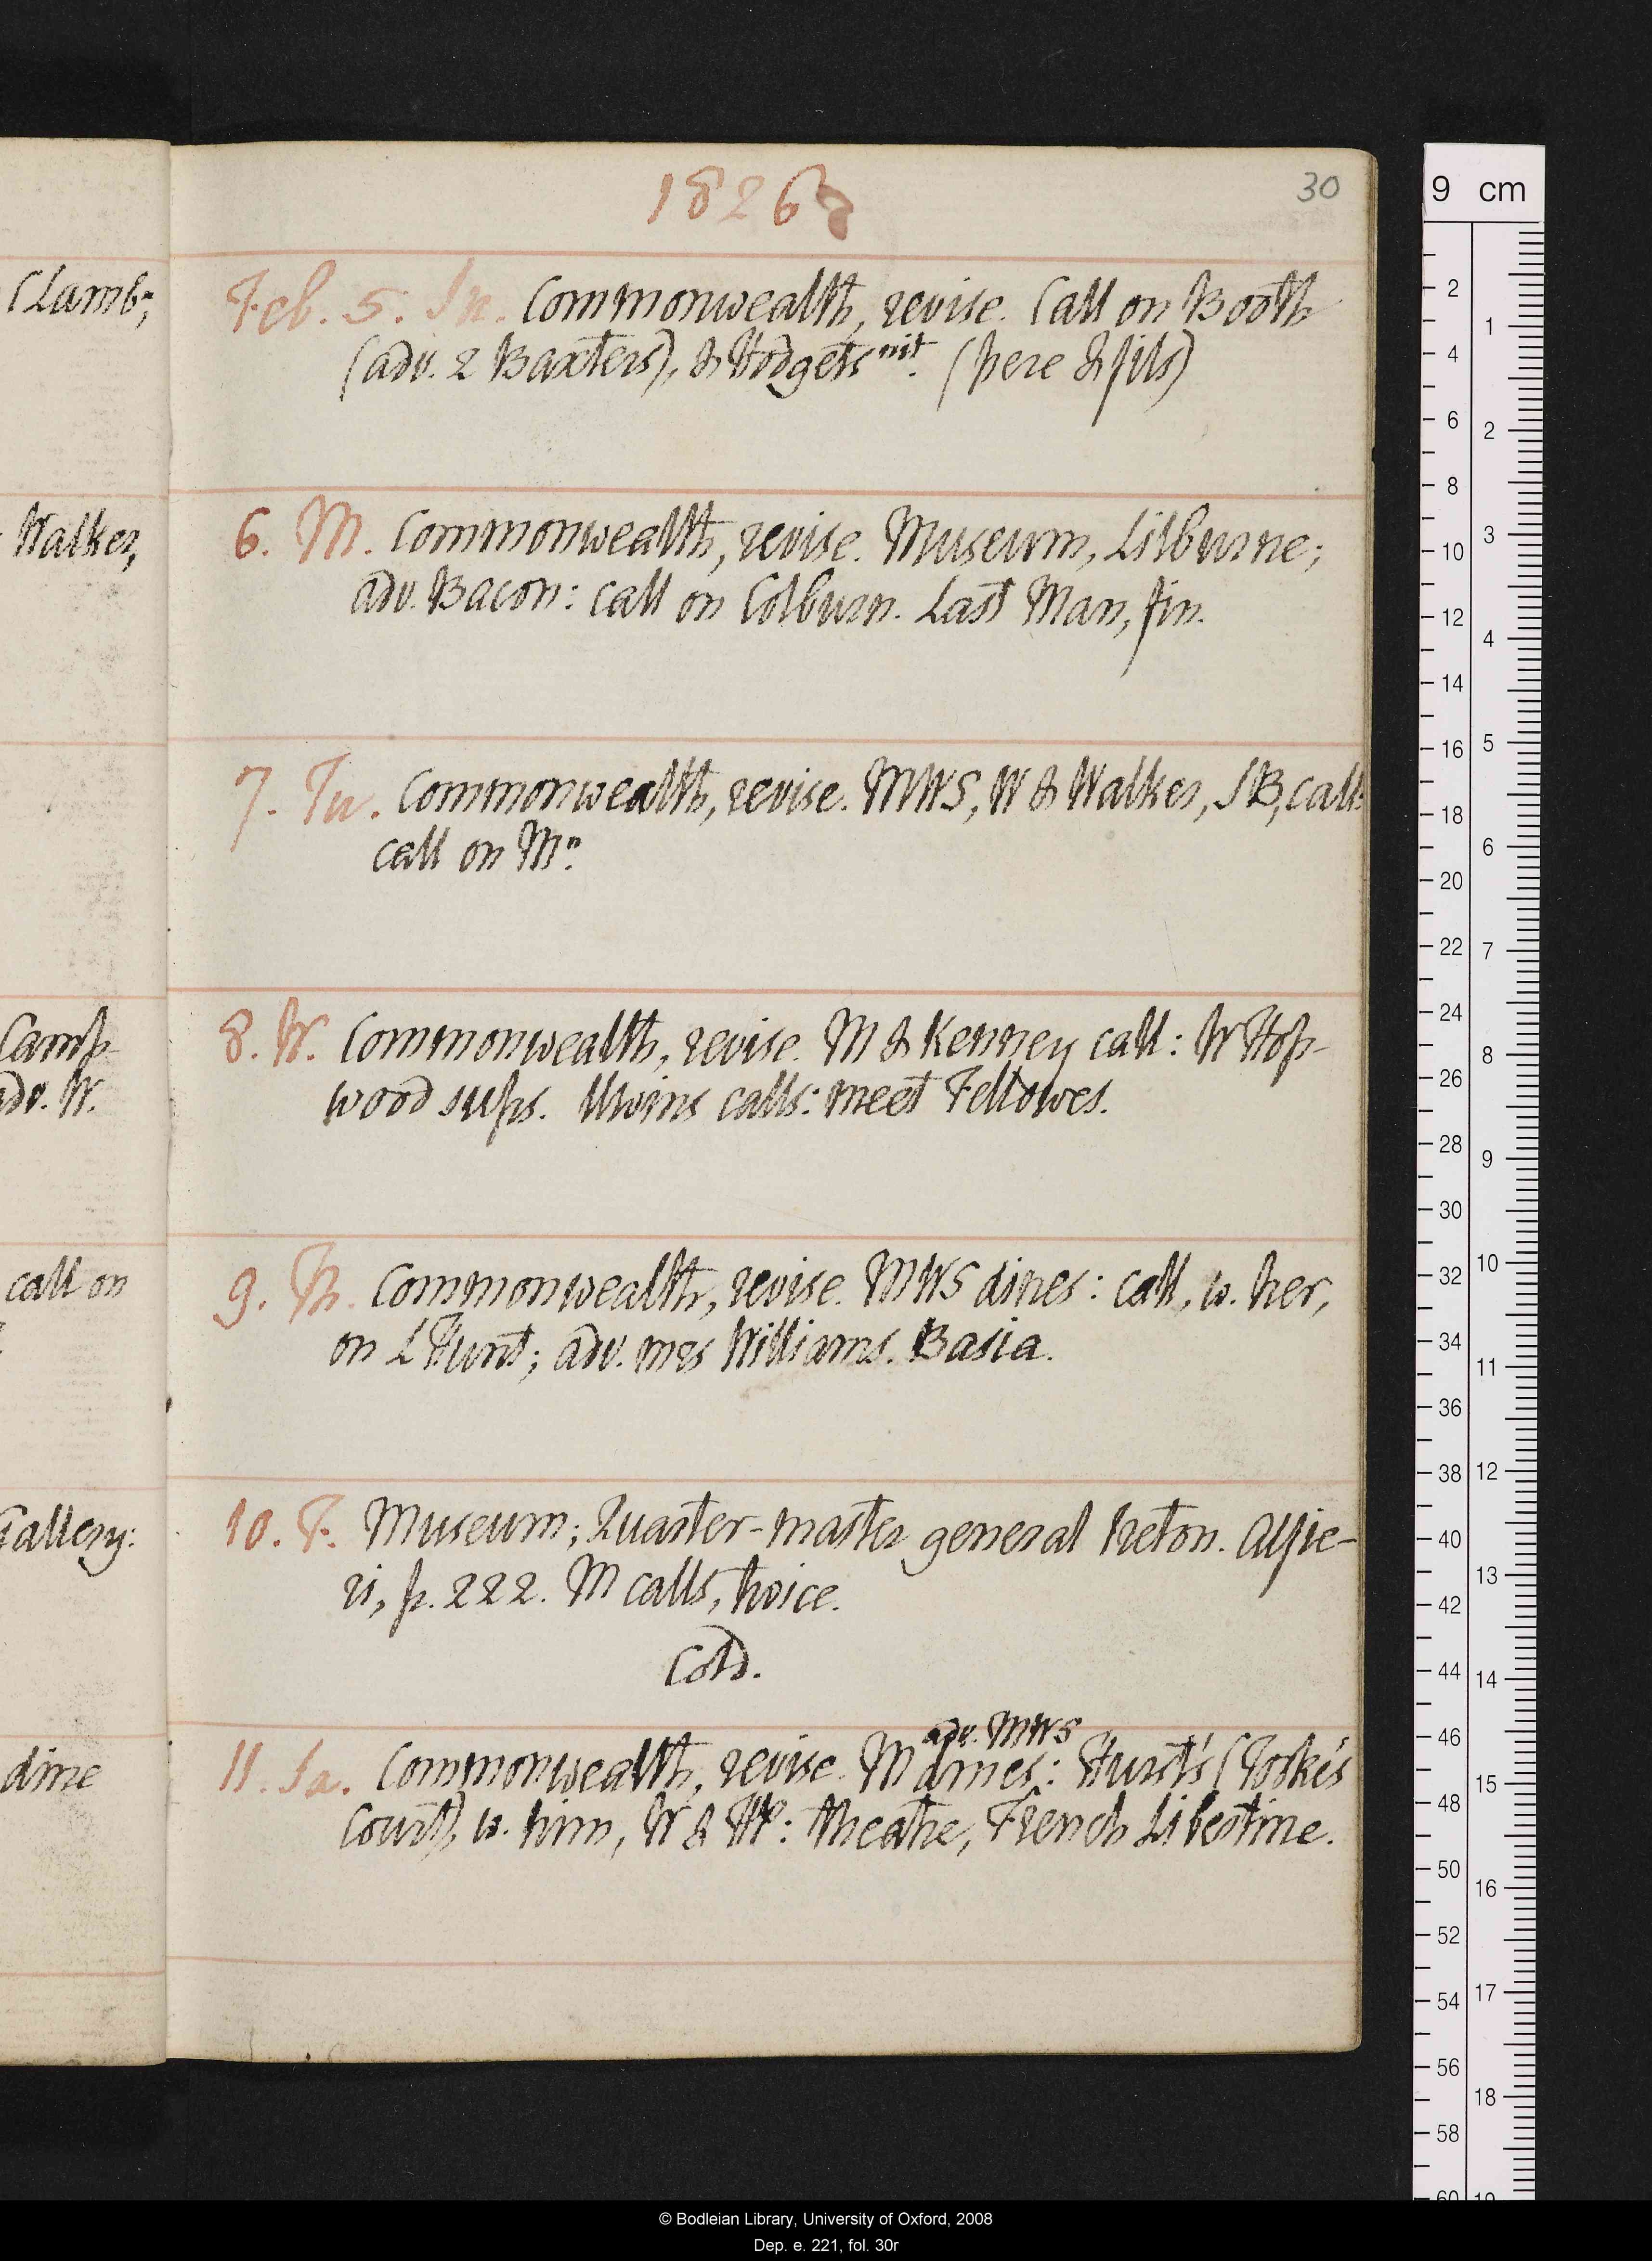 1826
30
(Lamb;
Feb. 5. Su. Commonwealth, revise. Call on Booth
(adv. 2 Baxters), & Hodgets nit. (pere & fils)
Walker,
6. M. Commonwealth, revise. Museum, Lilburne;
adv. Bacon: call on Colburn. Last Man, fin.
7. Tu. Commonwealth, revise. MWS, W & Walker, SB, call:
call on Mn.
Camp
adv. W.
8. W. Commonwealth, revise. M & Kenney call: W Hop-
wood sups. Uwins calls: meet Fellowes.
call on
9. Th. Commonwealth, revise. MWS dines: call, w. her,
on L Hunt; adv. mrs Williams. Basia.
Gallery:
10. F. Museum; Quarter-master general Ireton. Alfie-
ri, p. 222. M calls, twice.
Cold.
dine
adv. MWS
11. Sa. Commonwealth, revise. M dines: Hurst's (Took's
Court), w. him, W &: theatre, French Libertine.
9 cm
2
4
6
8
10
12
14
16
18
20
22
24
26
28
30
32
34
36
38
40
42
44
46
48
50
52
54
56
58
60
1
2
3
4
5
6
7
8
9
10
11
12
13
14
15
16
17
18
19
© Bodleian Library, University of Oxford, 2008
Dep. e. 221, fol. 30r